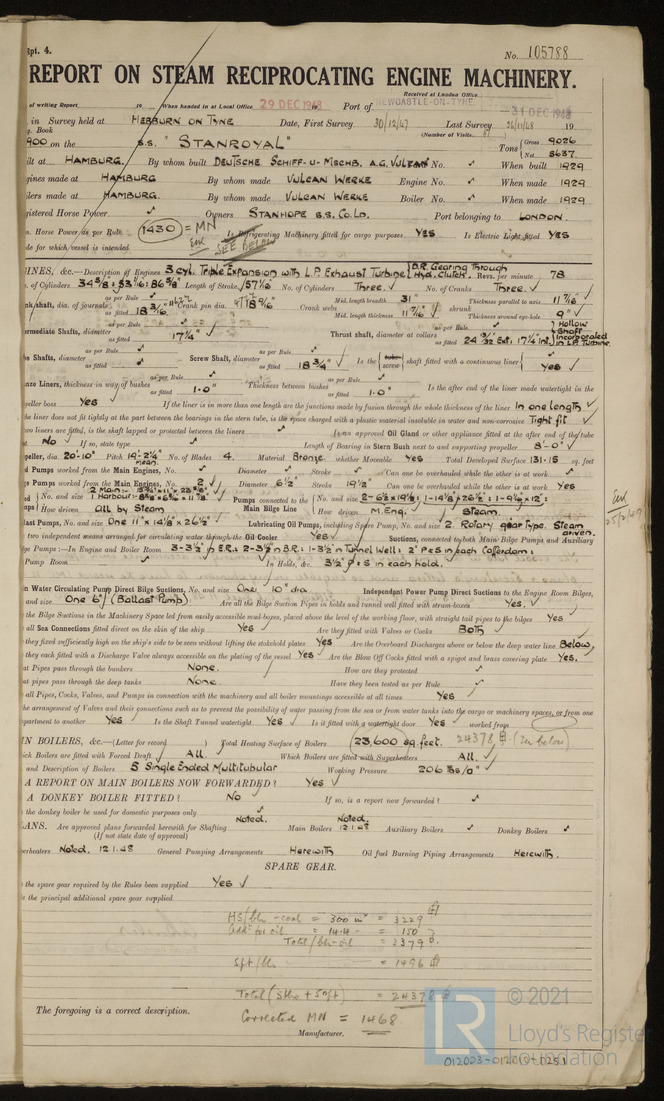 Rpt. 4.
No. 105788
REPORT ON STEAM RECIPROCATING ENGINE MACHINERY.
Received at London Office
of writing Report 19 When handed in at Local Office 29 DEC 1948 Port of NEWCASTLE-ON-TYNE 31 DEC 1948
in Survey held at HEBBURN ON TYNE Date, First Survey 30/12/47 Last Survey 26/11/48 19
Book (Number of Visits
900 on the s.s. "STANROYAL" Tons Gross 9026
Net 5637
ilt at HAMBURG. By whom built DEUTSCHE SCHIFF-U-MSCHB, A.G. VULCAN Yard No. ✓ When built 1929
gines made at HAMBURG By whom made VULCAN WERKE Engine No. ✓ When made 1929
ilers made at HAMBURG. By whom made VULCAN WERKE Boiler No. ✓ When made 1929
gistered Horse Power ✓ Owners STANHOPE S.S. Co. Ld. Port belonging to LONDON.
m. Horse Power as per Rule 1430 = MN Is Refrigerating Machinery fitted for cargo purposes YES Is Electric Light fitted YES
SEE BELOW
de for which vessel is intended
INES, &c.—Description of Engines 3 cyl. Triple Expansion with L.P. Exhaust Turbine D.R. Gearing through Hyd. Clutch. Revs. per minute 78
of Cylinders Length of Stroke 57 1/16" No. of Cylinders Three. ✓ No. of Cranks Three. ✓
nk shaft, dia. of journals as per Rule Crank pin dia. Crank webs Mid. length breadth 31" Thickness parallel to axis 11 7/16"
as fitted 18 3/16" 18 9/16" Mid. length thickness 11 7/16" shrunk Thickness around eye-hole 9"
ermediate Shafts, diameter as per Rule as fitted 17 1/4" Thrust shaft, diameter at collars as per Rule ✓ as fitted 24 3/32 Ext: 17 1/4 int. Hollow Shaft Incorporated in L.P. Turbine.
be Shafts, diameter as per Rule as fitted ✓ Screw Shaft, diameter as per Rule as fitted 18 3/4" Is the screw shaft fitted with a continuous liner Yes ✓
nze Liners, thickness in way of bushes as per Rule as fitted 1.0" Thickness between bushes as per Rule as fitted 1.0" Is the after end of the liner made watertight in the
peller boss Yes If the liner is in more than one length are the junctions made by fusion through the whole thickness of the liner In one length ✓
the liner does not fit tightly at the part between the bearings in the stern tube, is the space charged with a plastic material insoluble in water and non-corrosive Tight fit ✓
wo liners are fitted, is the shaft lapped or protected between the liners ✓ Is an approved Oil Gland or other appliance fitted at the after end of the tube
t No If so, state type ✓ Length of Bearing in Stern Bush next to and supporting propeller 8'-0" ✓
peller, dia. 20'-10" Pitch 19'-2 1/4" Mean. No. of Blades 4. Material Bronze whether Moveable Yes Total Developed Surface 131.15 sq. feet
d Pumps worked from the Main Engines, No. ✓ Diameter ✓ Stroke ✓ Can one be overhauled while the other is at work ✓
ge Pumps worked from the Main Engines, No. 2 Diameter 6 1/2" Stroke 19 1/2" Can one be overhauled while the other is at work Yes
No. and size Pumps connected to the Main Bilge Line No. and size
How driven All by Steam How driven M.Eng. Steam.
ast Pumps, No. and size One 11" x 14 1/8" x 26 1/2" Lubricating Oil Pumps, including Spare Pump, No. and size 2. Rotary gear Type. Steam driven.
two independent means arranged for circulating water through the Oil Cooler Yes ✓ Suctions, connected to both Main Bilge Pumps and Auxiliary
ge Pumps:—In Engine and Boiler Room 3-3 1/2" in E.R.: 2-3 1/2" in B.R.: 1-3 1/2" in Tunnel Well: 2" P & S in each Cofferdam:
Pump Room In Holds, &c. 3 1/2" P & S in each hold.
n Water Circulating Pump Direct Bilge Suctions, No. and size One 10" dia Independent Power Pump Direct Suctions to the Engine Room Bilges,
and size One 6" (Ballast Pump) Are all the Bilge Suction Pipes in holds and tunnel well fitted with strum-boxes Yes. ✓
the Bilge Suctions in the Machinery Space led from easily accessible mud-boxes, placed above the level of the working floor, with straight tail pipes to the bilges Yes
all Sea Connections fitted direct on the skin of the ship Yes ✓ Are they fitted with Valves or Cocks Both ✓
they fixed sufficiently high on the ship's side to be seen without lifting the stokehold plates Yes Are the Overboard Discharges above or below the deep water line Below,
they each fitted with a Discharge Valve always accessible on the plating of the vessel Yes ✓ Are the Blow Off Cocks fitted with a spigot and brass covering plate Yes.
at Pipes pass through the bunkers None. How are they protected ✓
at pipes pass through the deep tanks None. Have they been tested as per Rule ✓
all Pipes, Cocks, Valves, and Pumps in connection with the machinery and all boiler mountings accessible at all times Yes ✓
he arrangement of Valves and their connections such as to prevent the possibility of water passing from the sea or from water tanks into the cargo or machinery spaces, or from one
partment to another Yes Is the Shaft Tunnel watertight Yes ✓ Is it fitted with a watertight door Yes ✓ worked from
IN BOILERS, &c.—(Letter for record ) Total Heating Surface of Boilers 23,600 sq. feet. 24378 (See below)
ich Boilers are fitted with Forced Draft All. Which Boilers are fitted with Superheaters All. ✓
and Description of Boilers 5 Single Ended Multitubular Working Pressure 206 lbs/□"
A REPORT ON MAIN BOILERS NOW FORWARDED? Yes ✓
A DONKEY BOILER FITTED? No If so, is a report now forwarded? ✓
the donkey boiler be used for domestic purposes only ✓
ANS. Are approved plans forwarded herewith for Shafting Noted. Main Boilers Noted. 12.1.48 Auxiliary Boilers ✓ Donkey Boilers ✓
(If not state date of approval)
erheaters Noted. 12.1.48 General Pumping Arrangements Herewith Oil fuel Burning Piping Arrangements Herewith.
SPARE GEAR.
the spare gear required by the Rules been supplied Yes ✓
e the principal additional spare gear supplied
HS/blr - coal = 300 m² = 3229
Add. for oil = 14.4 = 150
Total/blr-oil = 3379
Spt/blr = 1496
Total (5 blrs + 5 spt) = 24378
Corrected MN = 1468
The foregoing is a correct description.
Manufacturer.
© 2021
LR
Lloyd's Register
Foundation
012003-012010-0251